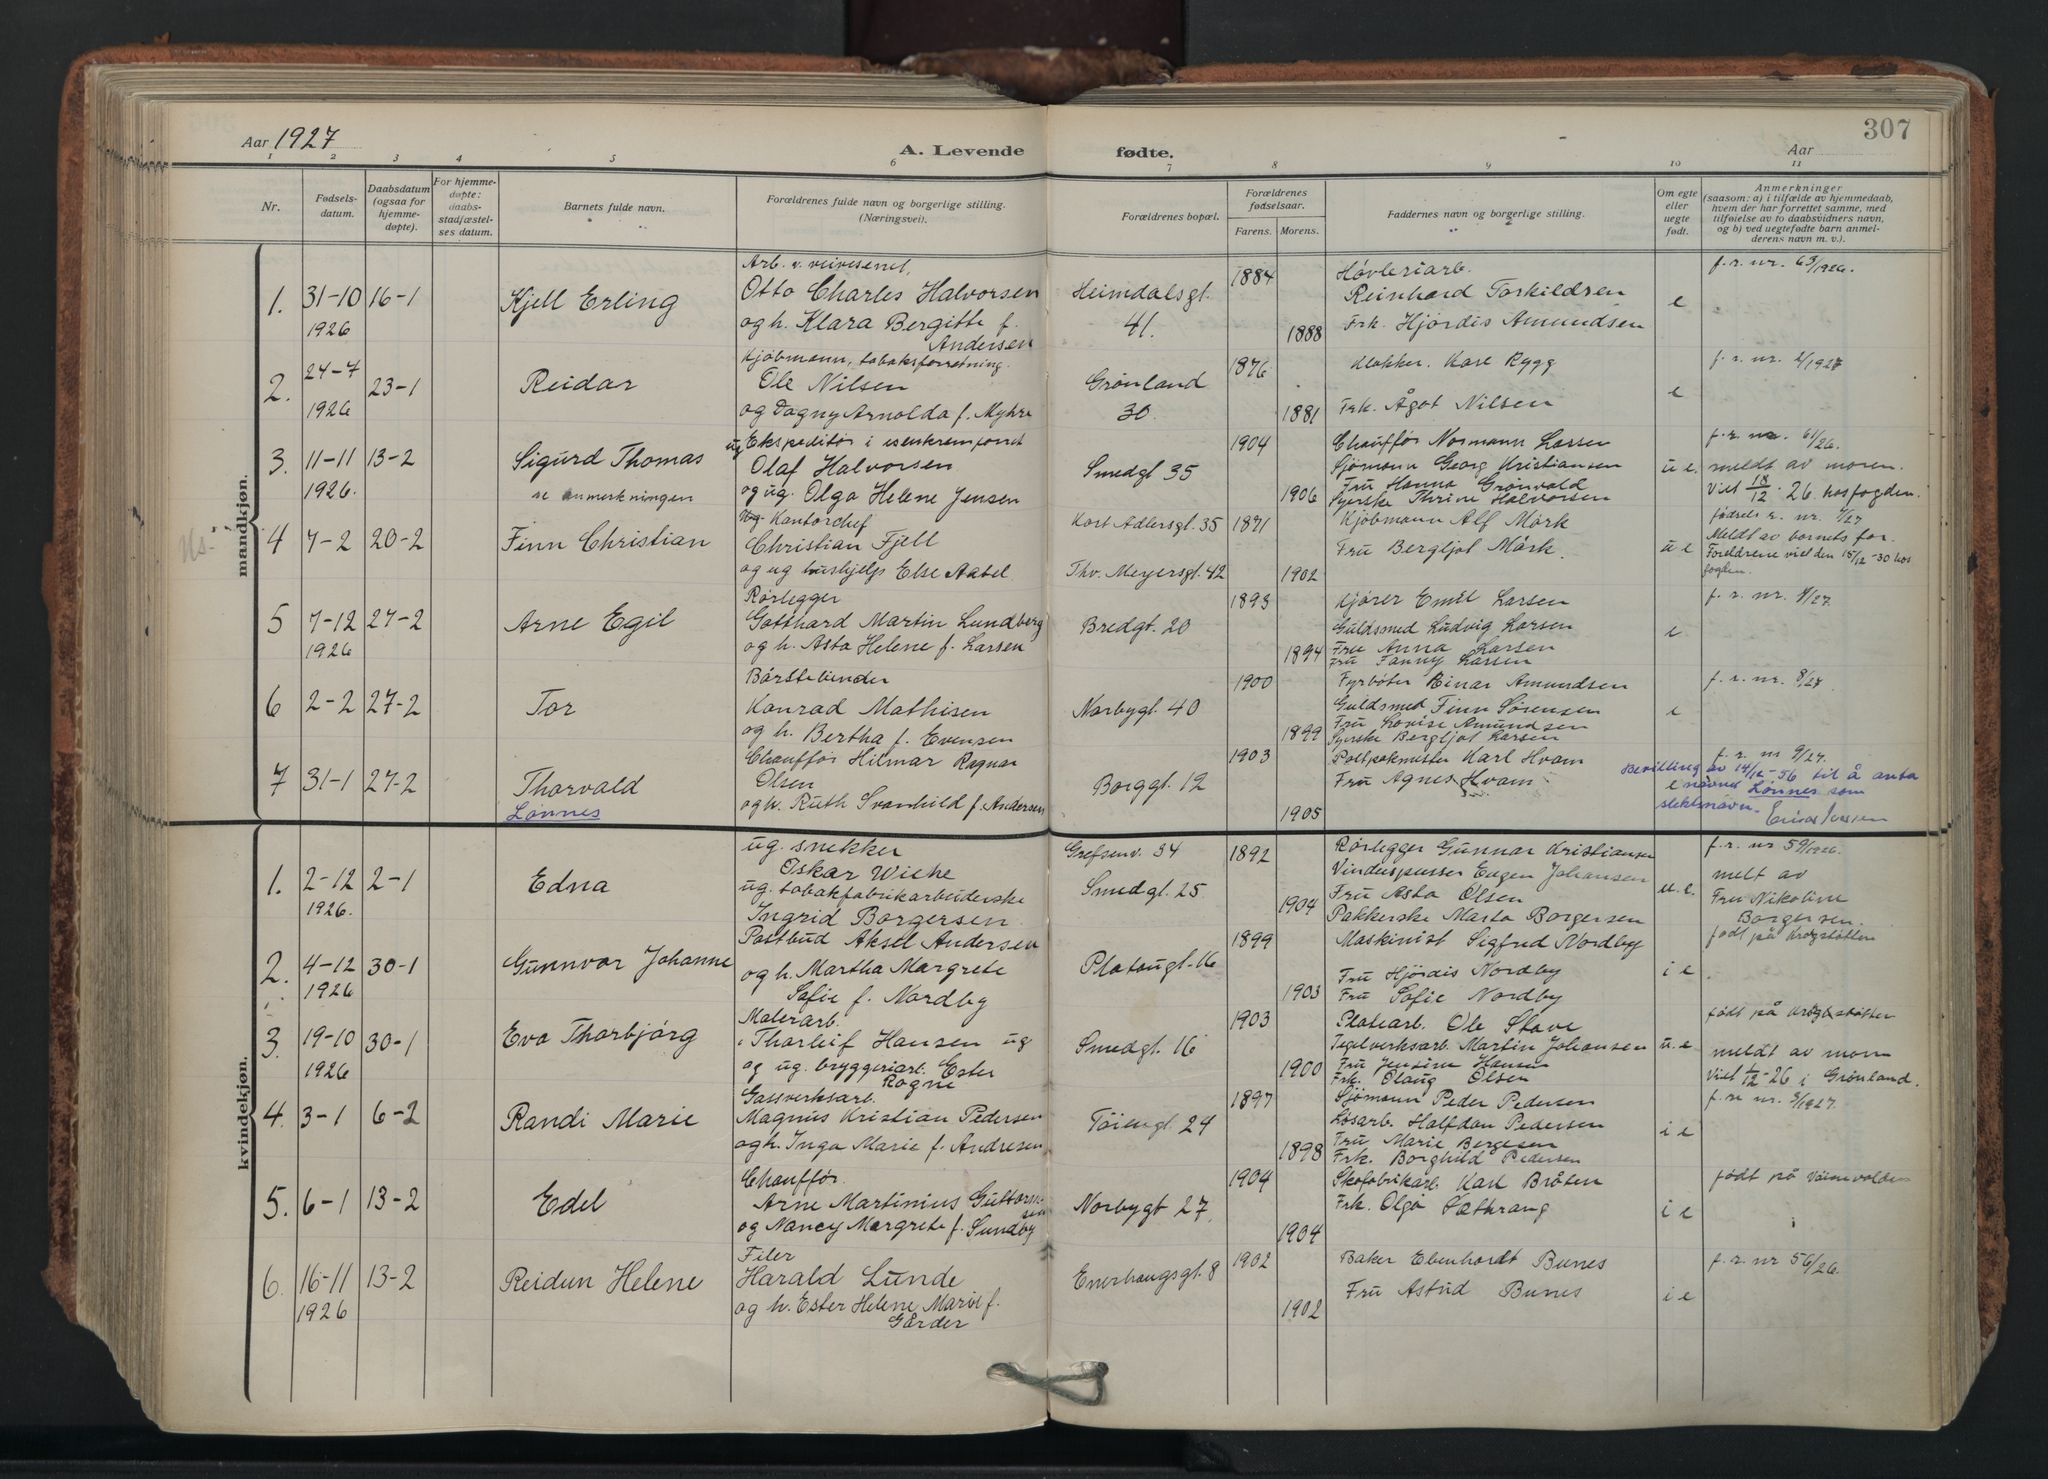 307
Aar 1927
A. Levende fødte.
Aar
1 2 3 4 5 6 7 8 9 10 11
Nr.
Fødsels-
datum.
Daabsdatum
(ogsaa for
hjemme-
døpte).
For hjemme-
døpte:
daabs-
stadfæstel-
ses datum.
Barnets fulde navn.
Forældrenes fulde navn og borgerlige stilling.
(Næringsvei).
Forældrenes bopæl.
Forældrenes
fødselsaar.
Farens. Morens.
Faddernes navn og borgerlige stilling.
Om egte
eller
uegte
født.
Anmerkninger
(saasom: a) i tilfælde av hjemmedaab,
hvem der har forrettet samme, med
tilføielse av to daabsvidners navn,
og b) ved uegtefødte barn anmel-
derens navn m. v.).
mandkjøn.
1. 31-10 16-1
1926
Kjell Erling
Arb. v. veivesenet,
Otto Charles Halvorsen
og h. Klara Bergitte f.
Andersen
Heimdalsgt.
41.
1884
1888
Høvleriarb.
Reinhard Torkildsen
Frk. Hjördis Amundsen
e
f. r. nr. 63/1926.
2. 24-7 23-1
1926
Reidar
Kjøbmann, tobaksforretning.
Ole Nilsen
og Dagny Arnolda f. Myhre
Grønland
30.
1876
1881
Klokker. Karl Rygg
Frk. Ågot Nilsen
e
f. r. nr. 2/1927
3. 11-11 13-2
1926.
Sigurd Thomas
se anmerkningen
ug Ekspeditør i isenkremforret
Olaf Halvorsen
og ug. Olga Helene Jensen
Smedgt 35
1904
1906
Chauffør Normann Larsen
Sjømann Georg Kristiansen
Fru Hanna Grønvald
Syerske Thrine Halvorsen
u e.
f. r. nr 61/26.
meldt av moren.
Viet 18/12 - 26 hos fogden.
4 7-2 20-2
Finn Christian
Ug. Kontorchef
Christian Fjell
og ug hushjelp Else Aabel
Kort Adlersgt. 35
Thv. Meyersgt. 42
1871
1902
Kjøbmann Alf Mörk
Fru Bergljot Mörk
u e
fødsels r. nr. 7/27
Meldt av barnets far.
Foreldrene viet den 15/12-30 hos
fogden.
5 7-12 27-2
1926
Arne Egil
Rørlegger
Gotthard Martin Lundberg
og h. Asta Helene f. Larsen
Bredgt. 20
1893
1894
Kjører Emil Larsen
Guldsmed Ludvig Larsen
Frue Anna Larsen
Fru Fanny Larsen
e
f. r. nr. 4/27.
6 2-2 27-2
Tor
Börstebinder
Konrad Mathisen
og h. Bertha f. Evensen
Norbygt. 40
1900
1899
Fyrbøter Einar Amundsen
Guldsmed Finn Sörensen
Fru Lovise Amundsen
Syerske Bergljot Larsen
e
f. r. nr. 8/27
7 31-1 27-2
Thorvald
Lønnes
Chauffør Hilmar Ragnar
Olsen
og h. Ruth Svanhild f. Andersen
Borggt. 12
1903
1905
Postpakmester Karl Hvam
Fru Agnes Hvam
e
f. r. nr 9/27.
Bevilling av 14/12-56 til å anta
navnet Lønnes som
slektsnavn.
kvindekjøn.
1. 2-12 2-1
1926.
Edna
ug. snekker
Oskar Wiche
ug. tobakfabrikarbeiderske
Ingrid Borgersen
Grefsenv. 34
Smedgt. 25
1892
1904
Rørlegger Gunnar Kristiansen
Vinduspusser Eugen Johansen
Fru Asta Olsen
Pakkerske Marta Borgersen
u. e.
f. r. nr 59/1926.
melt av
Fru Nikoline
Borgersen.
2. 4-12 30-1
1926
Gunnvor Johanne
Postbud Aksel Andersen
og h. Martha Margrete
Sofie f. Nordby
Platougt. 16
1899
1903
Maskinist Sigfred Nordby
Fru Hjördis Nordby
Fru Sofie Nordby
i e
født på Krogstøtten
3. 19-10 30-1
1926
Eva Thorbjörg
Malerarb.
Thorleif Hansen ug
og ug. bryggeriarb. Ester
Rogne
Smedgt. 16
1903
1900
Platearb. Ole Stave
Teglverksarb. Martin Johansen
Fru Jensine Hansen
Frk. Olaug Olsen
u. e
født på Krogstøtten
meldt av moren
Viet 1/12-26 i Grønland.
4. 3-1 6-2
Randi Marie
Gassverksarb.
Magnus Kristian Pedersen
og h. Inga Marie f. Andresen
Töiengt. 24
1897
1898
Sjømann Peder Pedersen
Løsarb. Halfdan Pedersen
Fru Marie Bergesen
Frk. Borghild Pedersen
i e
f. re nr. 3/1927.
5. 6-1 13-2
Edel
Chauffør.
Arne Martinius Guttorm-
sen
og Nancy Margrete f. Sundby
Norbygt 27,
1904
1904
Skofabrikarb. Karl Bråten
Frk. Olga Sæthrang
i e
født på
6. 16-11 13-2
1926
Reidun Helene
Filer
Harald Lunde
og h. Ester Helene Marie f.
Gårder
Enerhaugsgt. 8
1902
1902
Baker Ebenhardt Bunes
Fru Astrid Bunes
i e
f. r. nr 56/26.